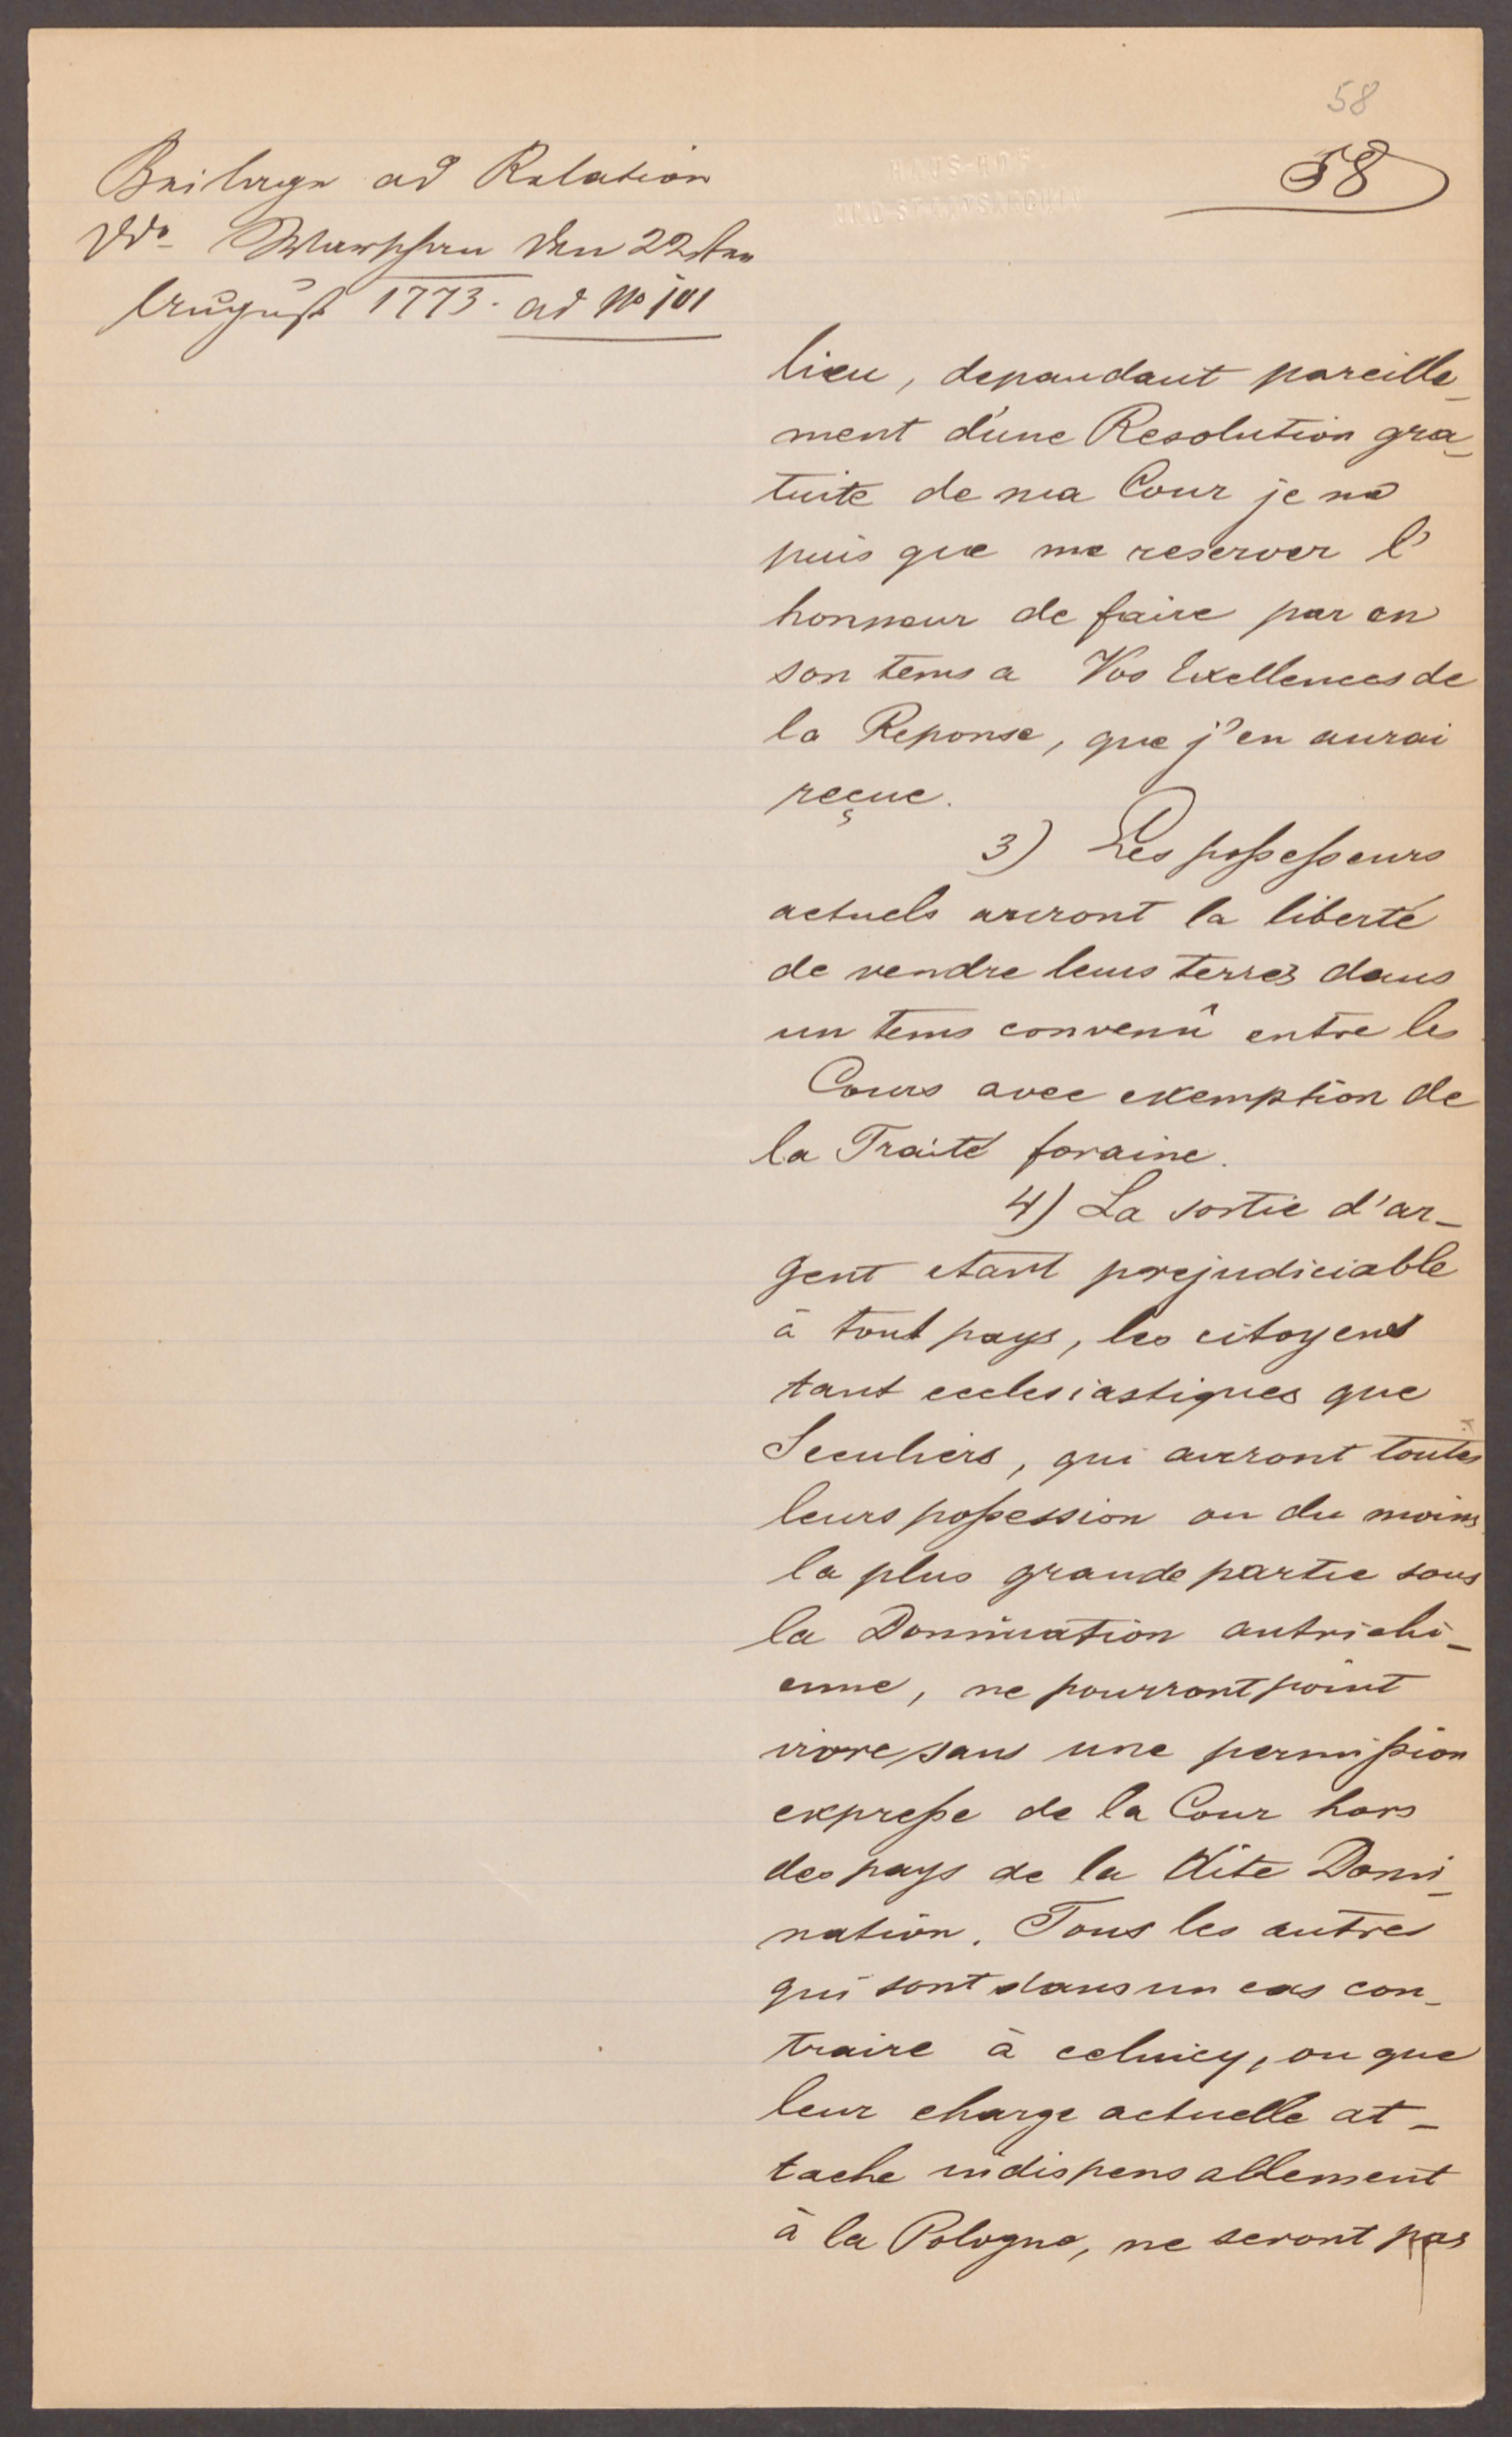 58
58
Beilage ad Relation
dd° Warschau den 22sten
August 1773. ad No 101
HAUS-HOF
UND STAATSARCHIV
lieu, dependant pareille_
ment d'une Resolution gra_
tuite de ma Cour je ne
puis que me reserver l'
honneur de faire par en
son tems a Vos Exellences de
la Reponse, que j'en aurai
reçue.
3) Les possesseurs
actuels auront la liberté
de vendre leurs terres dans
un tems convenû entre les
Cours avec exemption de
la Traité foraine.
4) La sortie d'ar_
gent etant prejudiciable
à tout pays, les citoyens
tant ecclesiastiques que
Seculiers, qui auront toutes
leurs possession ou du moins
la plus grande partie sous
la Domination autrichi_
enne, ne pourront point
vivre sans une permission
expresse de la Cour hors
des pays de la dite Domi_
nation. Tous les autres
qui sont dans un cas con_
traire à celuicy, ou que
leur charge actuelle at_
tache indispensablement
à la Pologne, ne seront pas